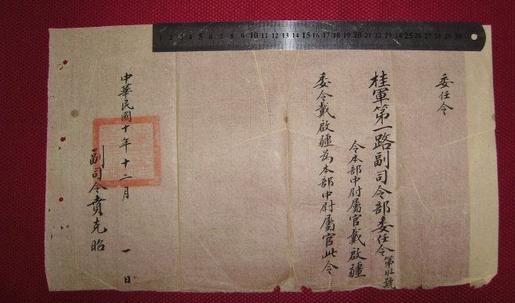 委任令
桂軍第一路副司令部委任令第卅號
令本部中尉屬官戴啟疆
委令戴啟疆為本部中尉屬官此令
中華民國十年十二月一日
副司令賁克昭
1 2 3 4 5 6 7 8 9 10 11 12 13 14 15 16 17 18 19 20 21 22 23 24 25 26 27 28 29 30